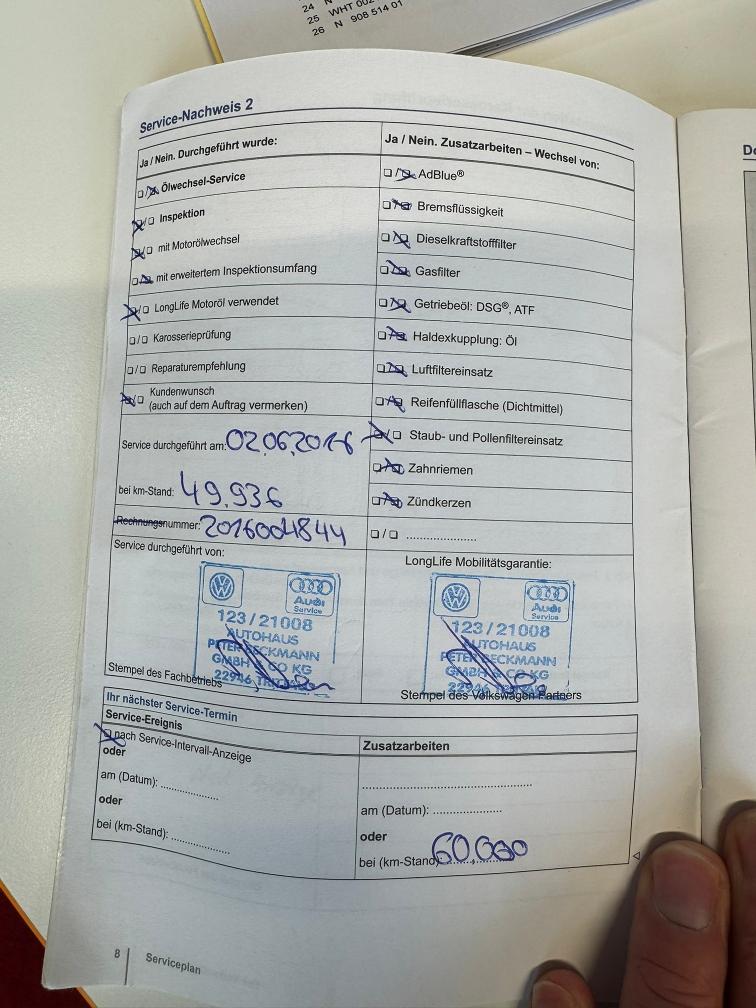 24 N
25 WHT 002
26 N 908 514 01
Service-Nachweis 2
Ja / Nein. Durchgeführt wurde:
Ölwechsel-Service
Inspektion
mit Motorölwechsel
mit erweitertem Inspektionsumfang
LongLife Motoröl verwendet
Karosserieprüfung
Reparaturempfehlung
Kundenwunsch
(auch auf dem Auftrag vermerken)
Service durchgeführt am: 02.06.2016
bei km-Stand: 49.936
Rechnungsnummer: 2016004844
Service durchgeführt von:
Audi
Service
123/21008
AUTOHAUS
PETER BECKMANN
GMBH & CO KG
22946
Stempel des Fachbetriebs
Ja / Nein. Zusatzarbeiten – Wechsel von:
AdBlue®
Bremsflüssigkeit
Dieselkraftstofffilter
Gasfilter
Getriebeöl: DSG®, ATF
Haldexkupplung: Öl
Luftfiltereinsatz
Reifenfüllflasche (Dichtmittel)
Staub- und Pollenfiltereinsatz
Zahnriemen
Zündkerzen
/ ....................
LongLife Mobilitätsgarantie:
Audi
Service
123/21008
AUTOHAUS
PETER BECKMANN
GMBH & CO KG
22946
Stempel des Volkswagen Partners
Ihr nächster Service-Termin
Service-Ereignis
nach Service-Intervall-Anzeige
oder
am (Datum): ................
oder
bei (km-Stand): ................
Zusatzarbeiten
................................................
am (Datum): ...................
oder
bei (km-Stand): 60.000
8 Serviceplan